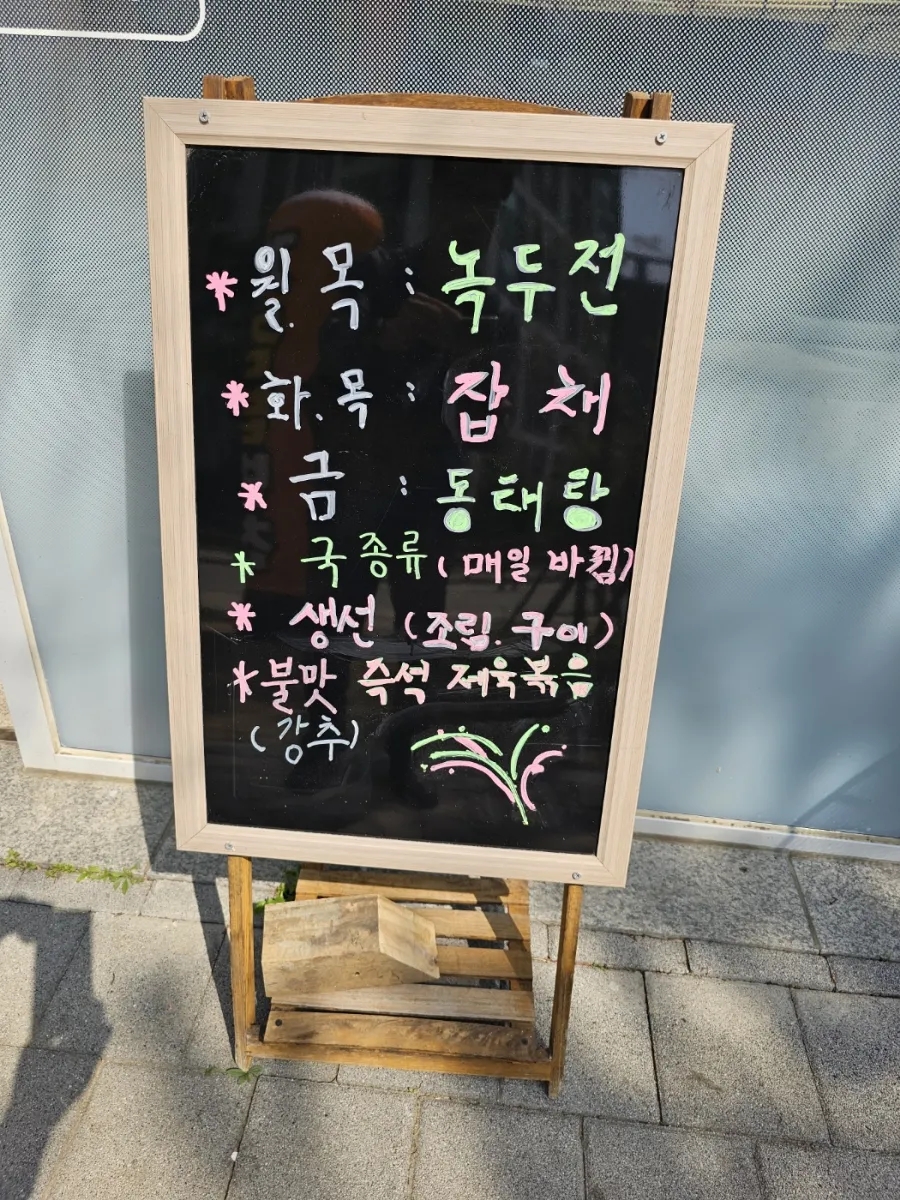 * 월. 목 : 녹두전
* 화. 목 : 잡채
* 금 : 동태탕
* 국종류 (매일 바뀜)
* 생선 (조림. 구이)
* 불맛 즉석 제육볶음
(강추)